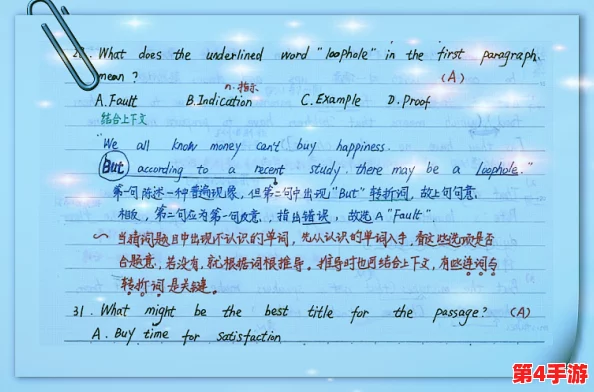 28. What does the underlined word "loophole" in the first paragraph
mean? (A)
n.指示
A.Fault B.Indication C.Example D.Proof
结合上下文
"We all know money can't buy happiness.
But according to a recent study, there may be a loophole."
第一句陈述一种普遍现象,但第二句中出现"But"转折词,故上句句意
相反,第二句应为第一句反意,指出错误,故选A"Fault".
当猜词题目中出现不认识的单词,先从认识的单词入手,看这些选项是否
合题意,若没有,就根据词根推导。推导时也可结合上下文,有些连词与
转折词是关键。
31. What might be the best title for the passage? (A)
A. Buy time for satisfaction
第4手游